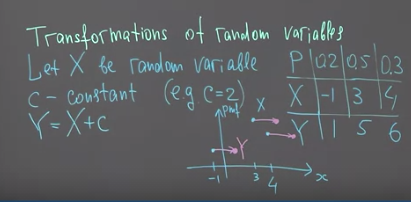 Transformations of random variables
Let X be random variable
c - constant (e.g c=2)
Y = X+c
P | 0.2 | 0.5 | 0.3
X | -1 | 3 | 4
Y | 1 | 5 | 6
pmf
X
Y
-1 3 4 x